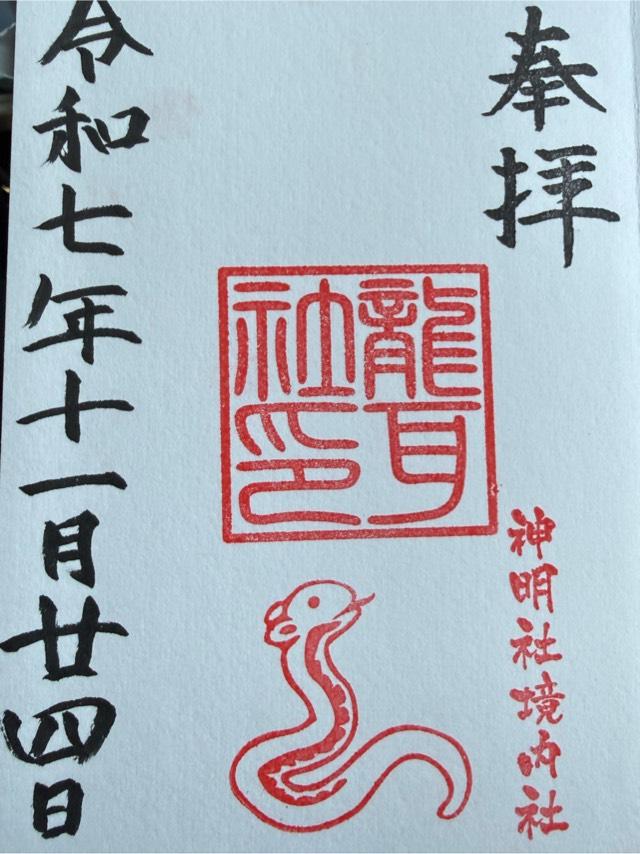 奉拝
龍耳
社印
神明社境内社
令和七年十一月廿四日